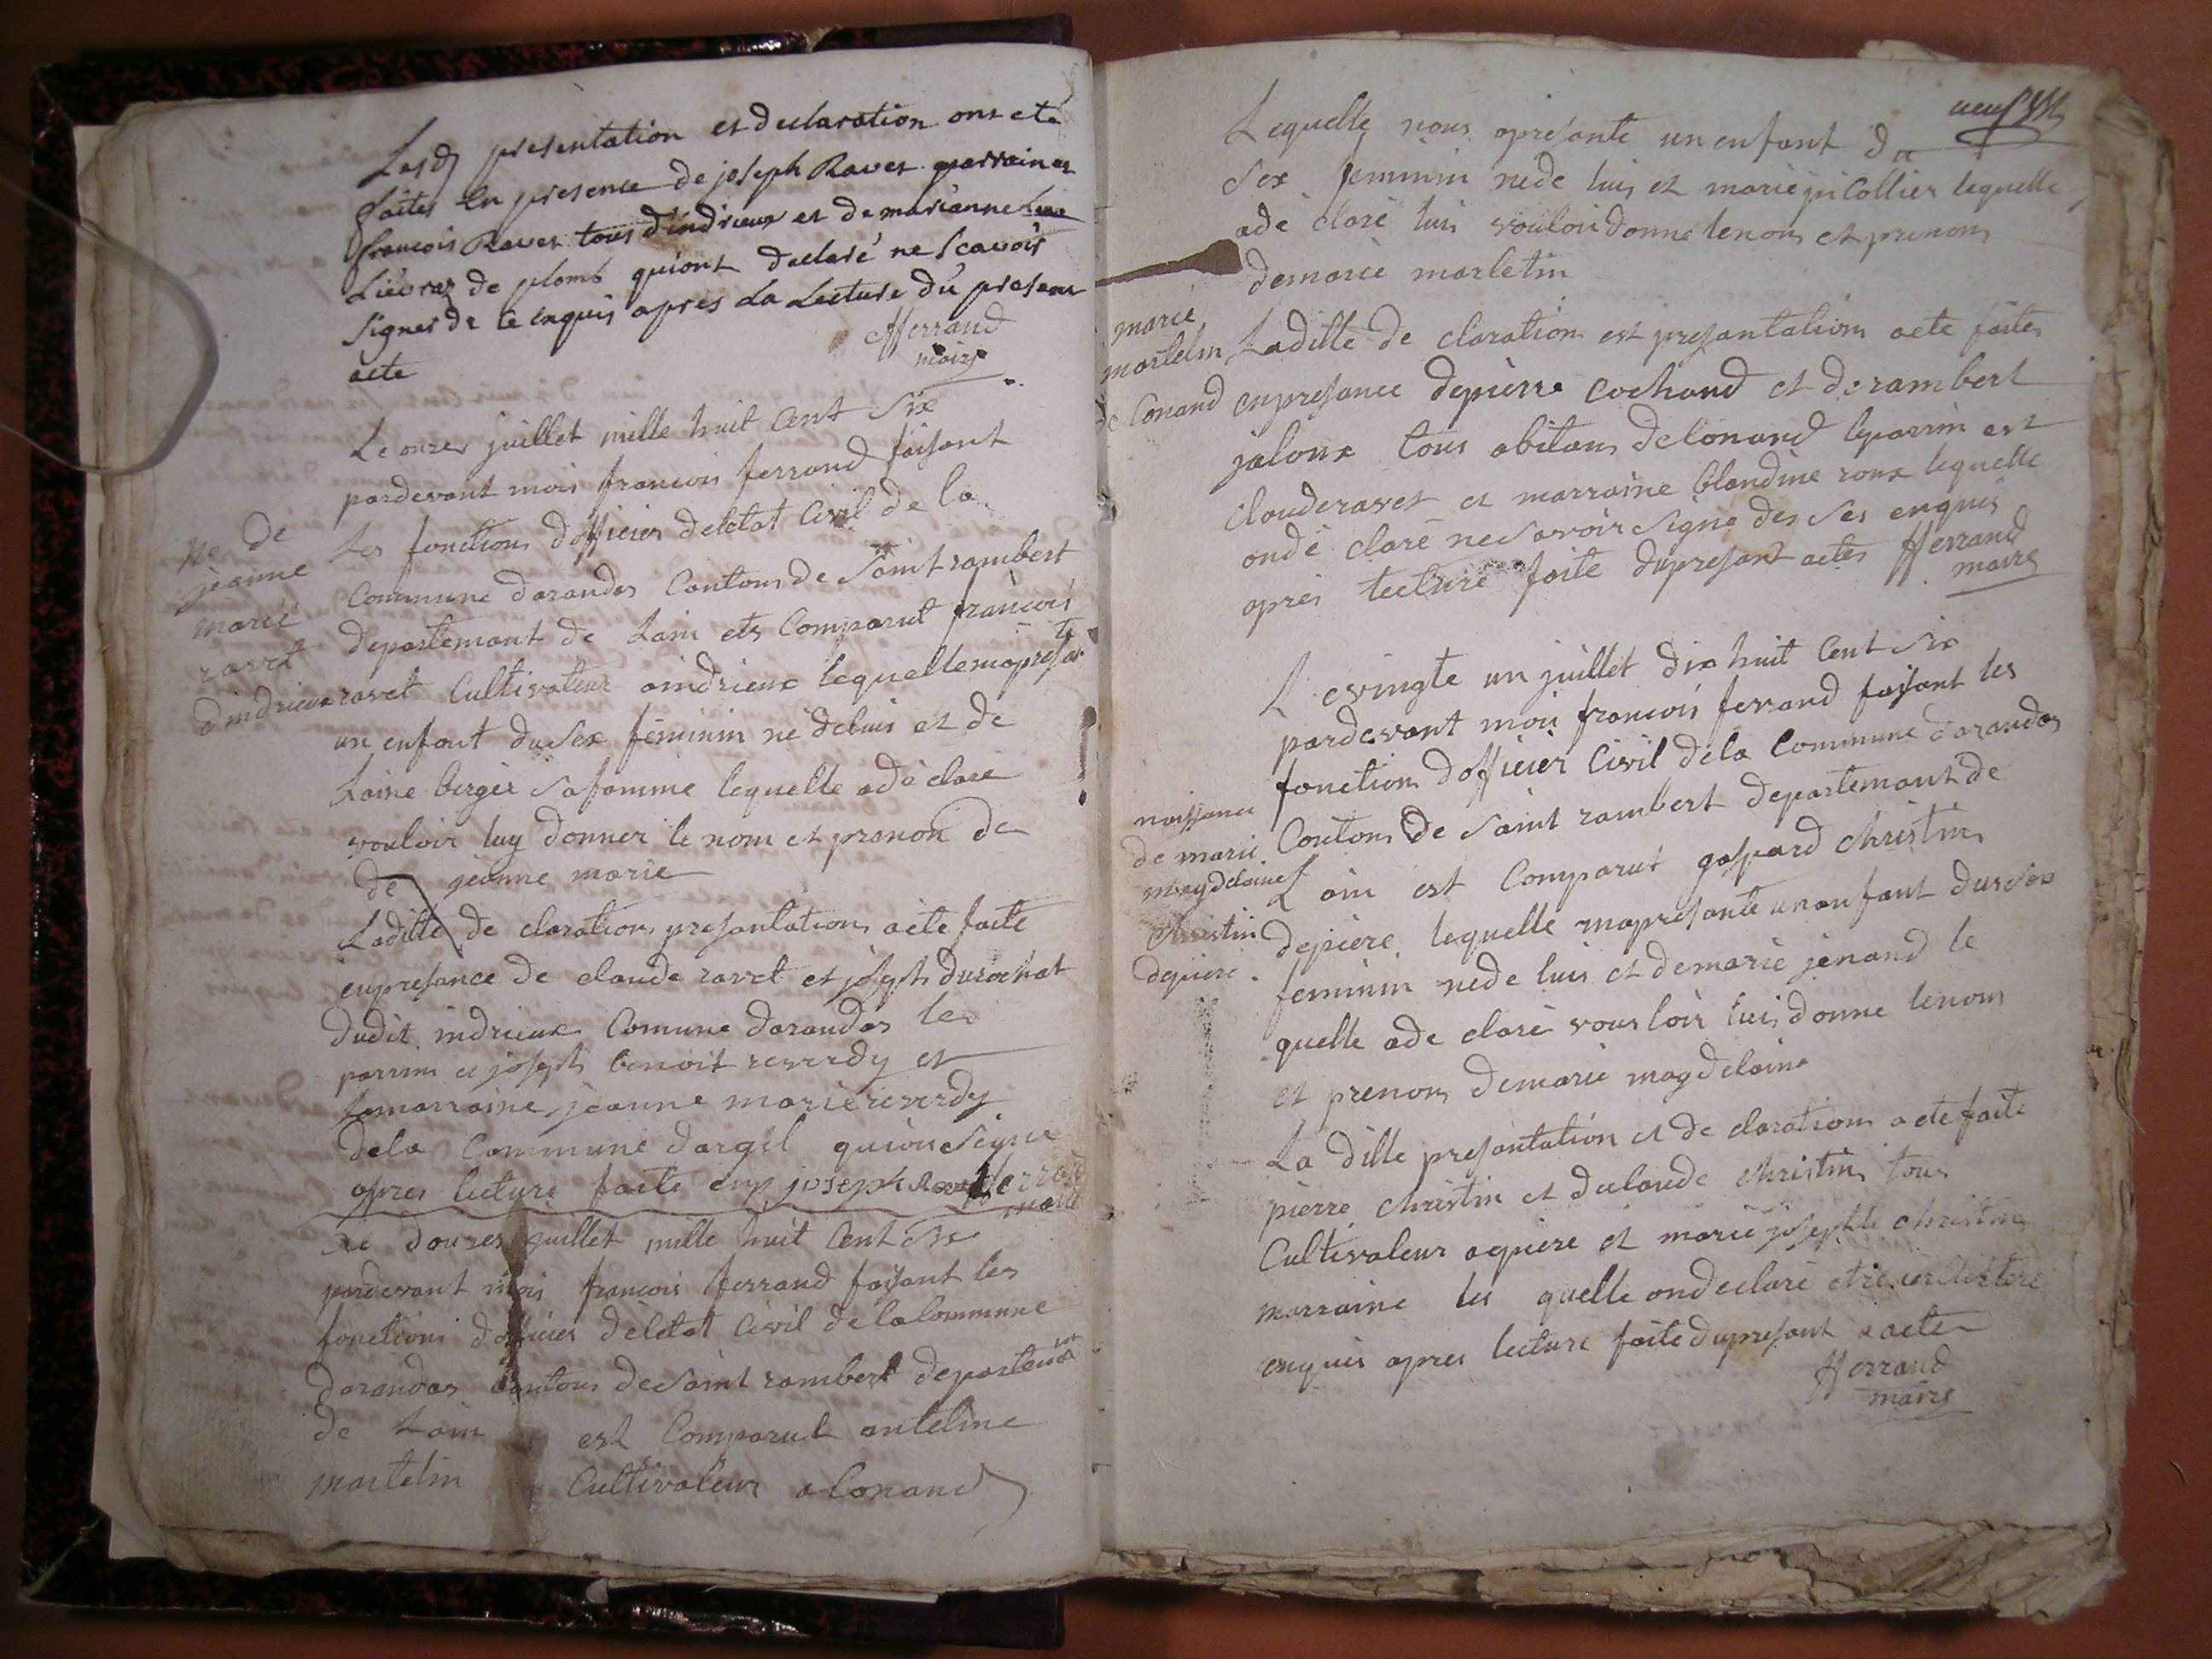 Lesd presentation et declaration ont ete
faites En presence de joseph Ravet parrain et
francois Ravet tous dindrieux et de marianne
Liévraz de plomb quiont declaré ne Scavoir
Signer de ce enquis apres La Lecture du present
acte
fferrand
maire
Le onzes juillet mille huit Cent Six
pardevant moi francois ferrand faisant
Les fonctions dofficier deletat Civil de la
Commune darandas Cantons de Saint rambert
departemant de Lain ets Comparut francois
ravet Cultivateur aindrieux lequelle mapresante
un enfant du Sex feminin né deluis et de
Laine bergér Safamme lequelle adé claré
vouloir luy donner le nom et pranon de
de jeanne marie
Laditte de claration presantations aéte faite
enpresance de claude ravet et joseph durochat
dudit indrieux Comune darandas le
parrins et joseph benoit reverdy et
lamarraine jeanne marie reverdy
dela Commune dargil quion Signé
apres lecture faite enp joseph Ravet fferrand
maire
ne de
jeanne
marie
ravet
dindrieux
Le douzes juillet mille huit Cent Six
pardevant moi francois ferrand faisant les
fonctions dofficier deletat Civil de la Commune
darandas Cantons de Saint rambert departemant
de Lain est Comparut antelme
martelin Cultivateur a Conand
neuf
Lequelle nous apresante un enfant du
Sex feminin né de luis et marie Collier lequelle
adé claré luis vouloir donne lenom et prenom
demarie marletin
marie
martelin
Conand
Laditte de claration est presantations aete faites
enpresance depierre Cochand et de rambert
jaloux tous abitans de Conand leparrin est
claude ravet et marraine Clandine roux lequelle
ondé claré ne Savoir Signe des Ses enquis
apres lecture faite dupresant actes fferrand
maire
Levingte un juillet dix huit Cent Six
pardevant moi francois ferrand faisant les
fonction dofficier Civil dela Commune darandas
Contons de Saint rambert departemant de
Lain est Comparut gaspard christin
depiere lequelle mapresante unanfant dusex
feminin né de luis et demarie jenand le
quelle ade claré vous loir luis donne lenom
et prenom demarie magdelaine
naissance
de marie
magdelaine
Christin
depiere
La ditte presantation et de claration a ete faite
pierre christin et declaude christin tous
Cultivateur apiere et marie josephte christin
marraine les quelle ondeclaré etre
enquis apres lecture faite dupresant acte
fferrand
maire